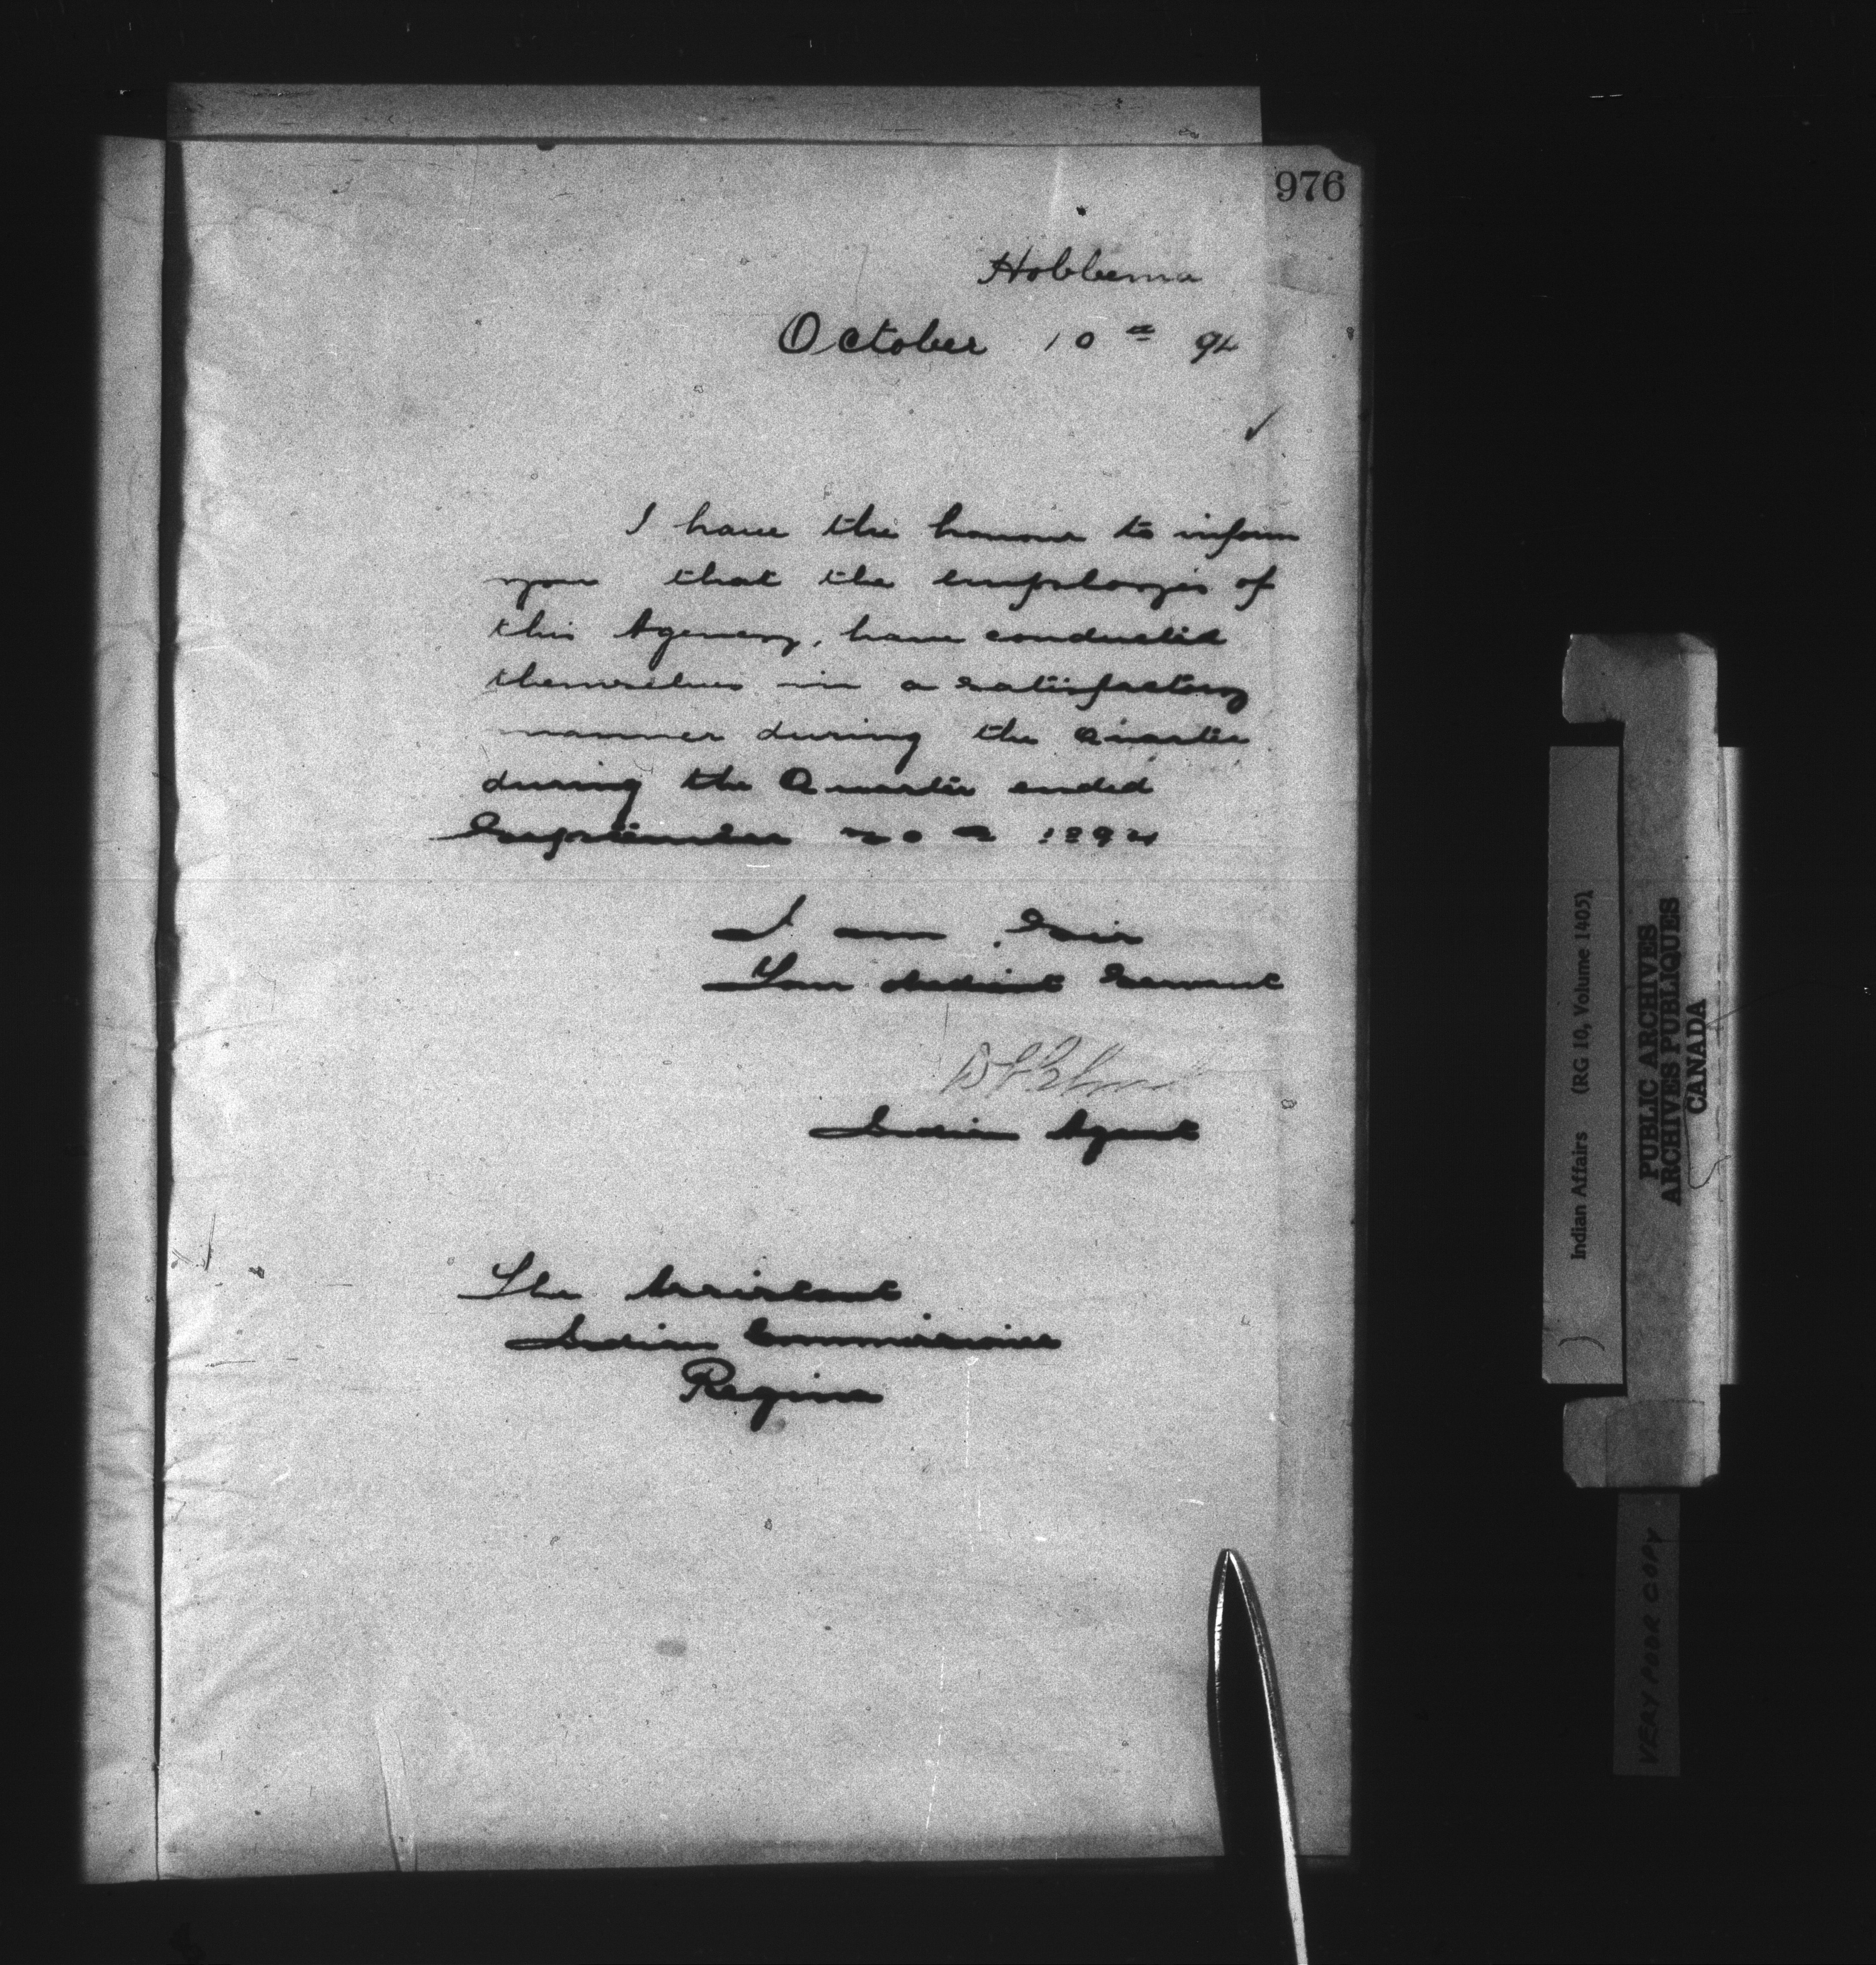 976
Hobbema
October 10th 94
I have the honour to inform
you that the employees of
this Agency, have conducted
themselves in a satisfactory
manner during the Quarter
during the Quarter ended
September 30th 1894
I am, Sir
Your obedient Servant
Indian Agent
The Assistant
Indian Commissioner
Regina
Indian Affairs (RG 10, Volume 1405)
PUBLIC ARCHIVES
ARCHIVES PUBLIQUES
CANADA
VERY POOR COPY